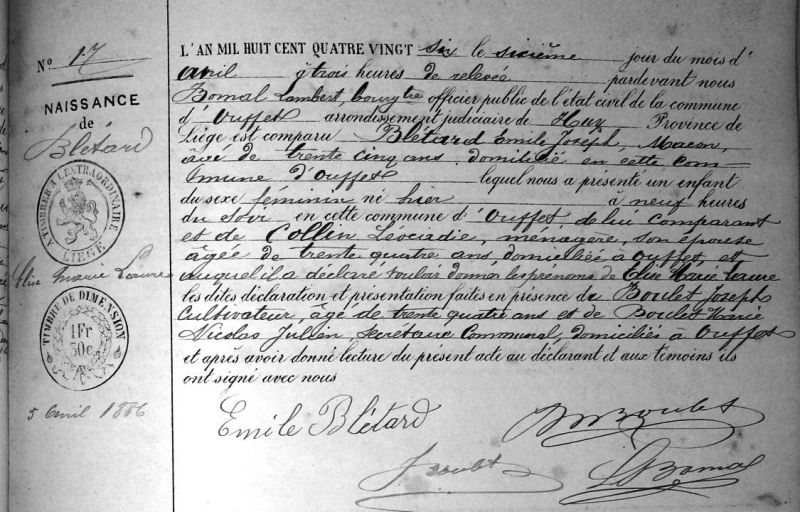 N° 17
NAISSANCE
de
Blétard
A TIMBRER A L'EXTRAORDINAIRE
LIEGE
Elise Marie Laure
TIMBRE DE DIMENSION
1Fr
30c
5 avril 1886
L'AN MIL HUIT CENT QUATRE VINGT six le sixième jour du mois d'
avril à trois heures de relevée pardevant nous
Bomal Lambert, bourgtre officier public de l'état civil de la commune
d'Ouffet arrondissement judiciaire de Huy Province de
Liège est comparu Blétard Emile Joseph, Maçon,
âgé de trente cinq ans, domicilié en cette com
mune d'Ouffet lequel nous a présenté un enfant
du sexe féminin né hier à neuf heures
du soir en cette commune d'Ouffet, de lui comparant
et de Collin Léociadie, ménagère, son épouse
âgée de trente quatre ans, domiciliée à Ouffet, et
auquel il a déclaré vouloir donner les prénoms de Elise Marie Laure
les dites déclaration et présentation faites en présence de Boulet Joseph
Cultivateur, âgé de trente quatre ans et de Boulet Marie
Nicolas Julien, Secrétaire Communal, domiciliés à Ouffet
et après avoir donné lecture du présent acte au déclarant et aux témoins ils
ont signé avec nous
Emile Blétard
Boulet
J Boulet
L Bomal